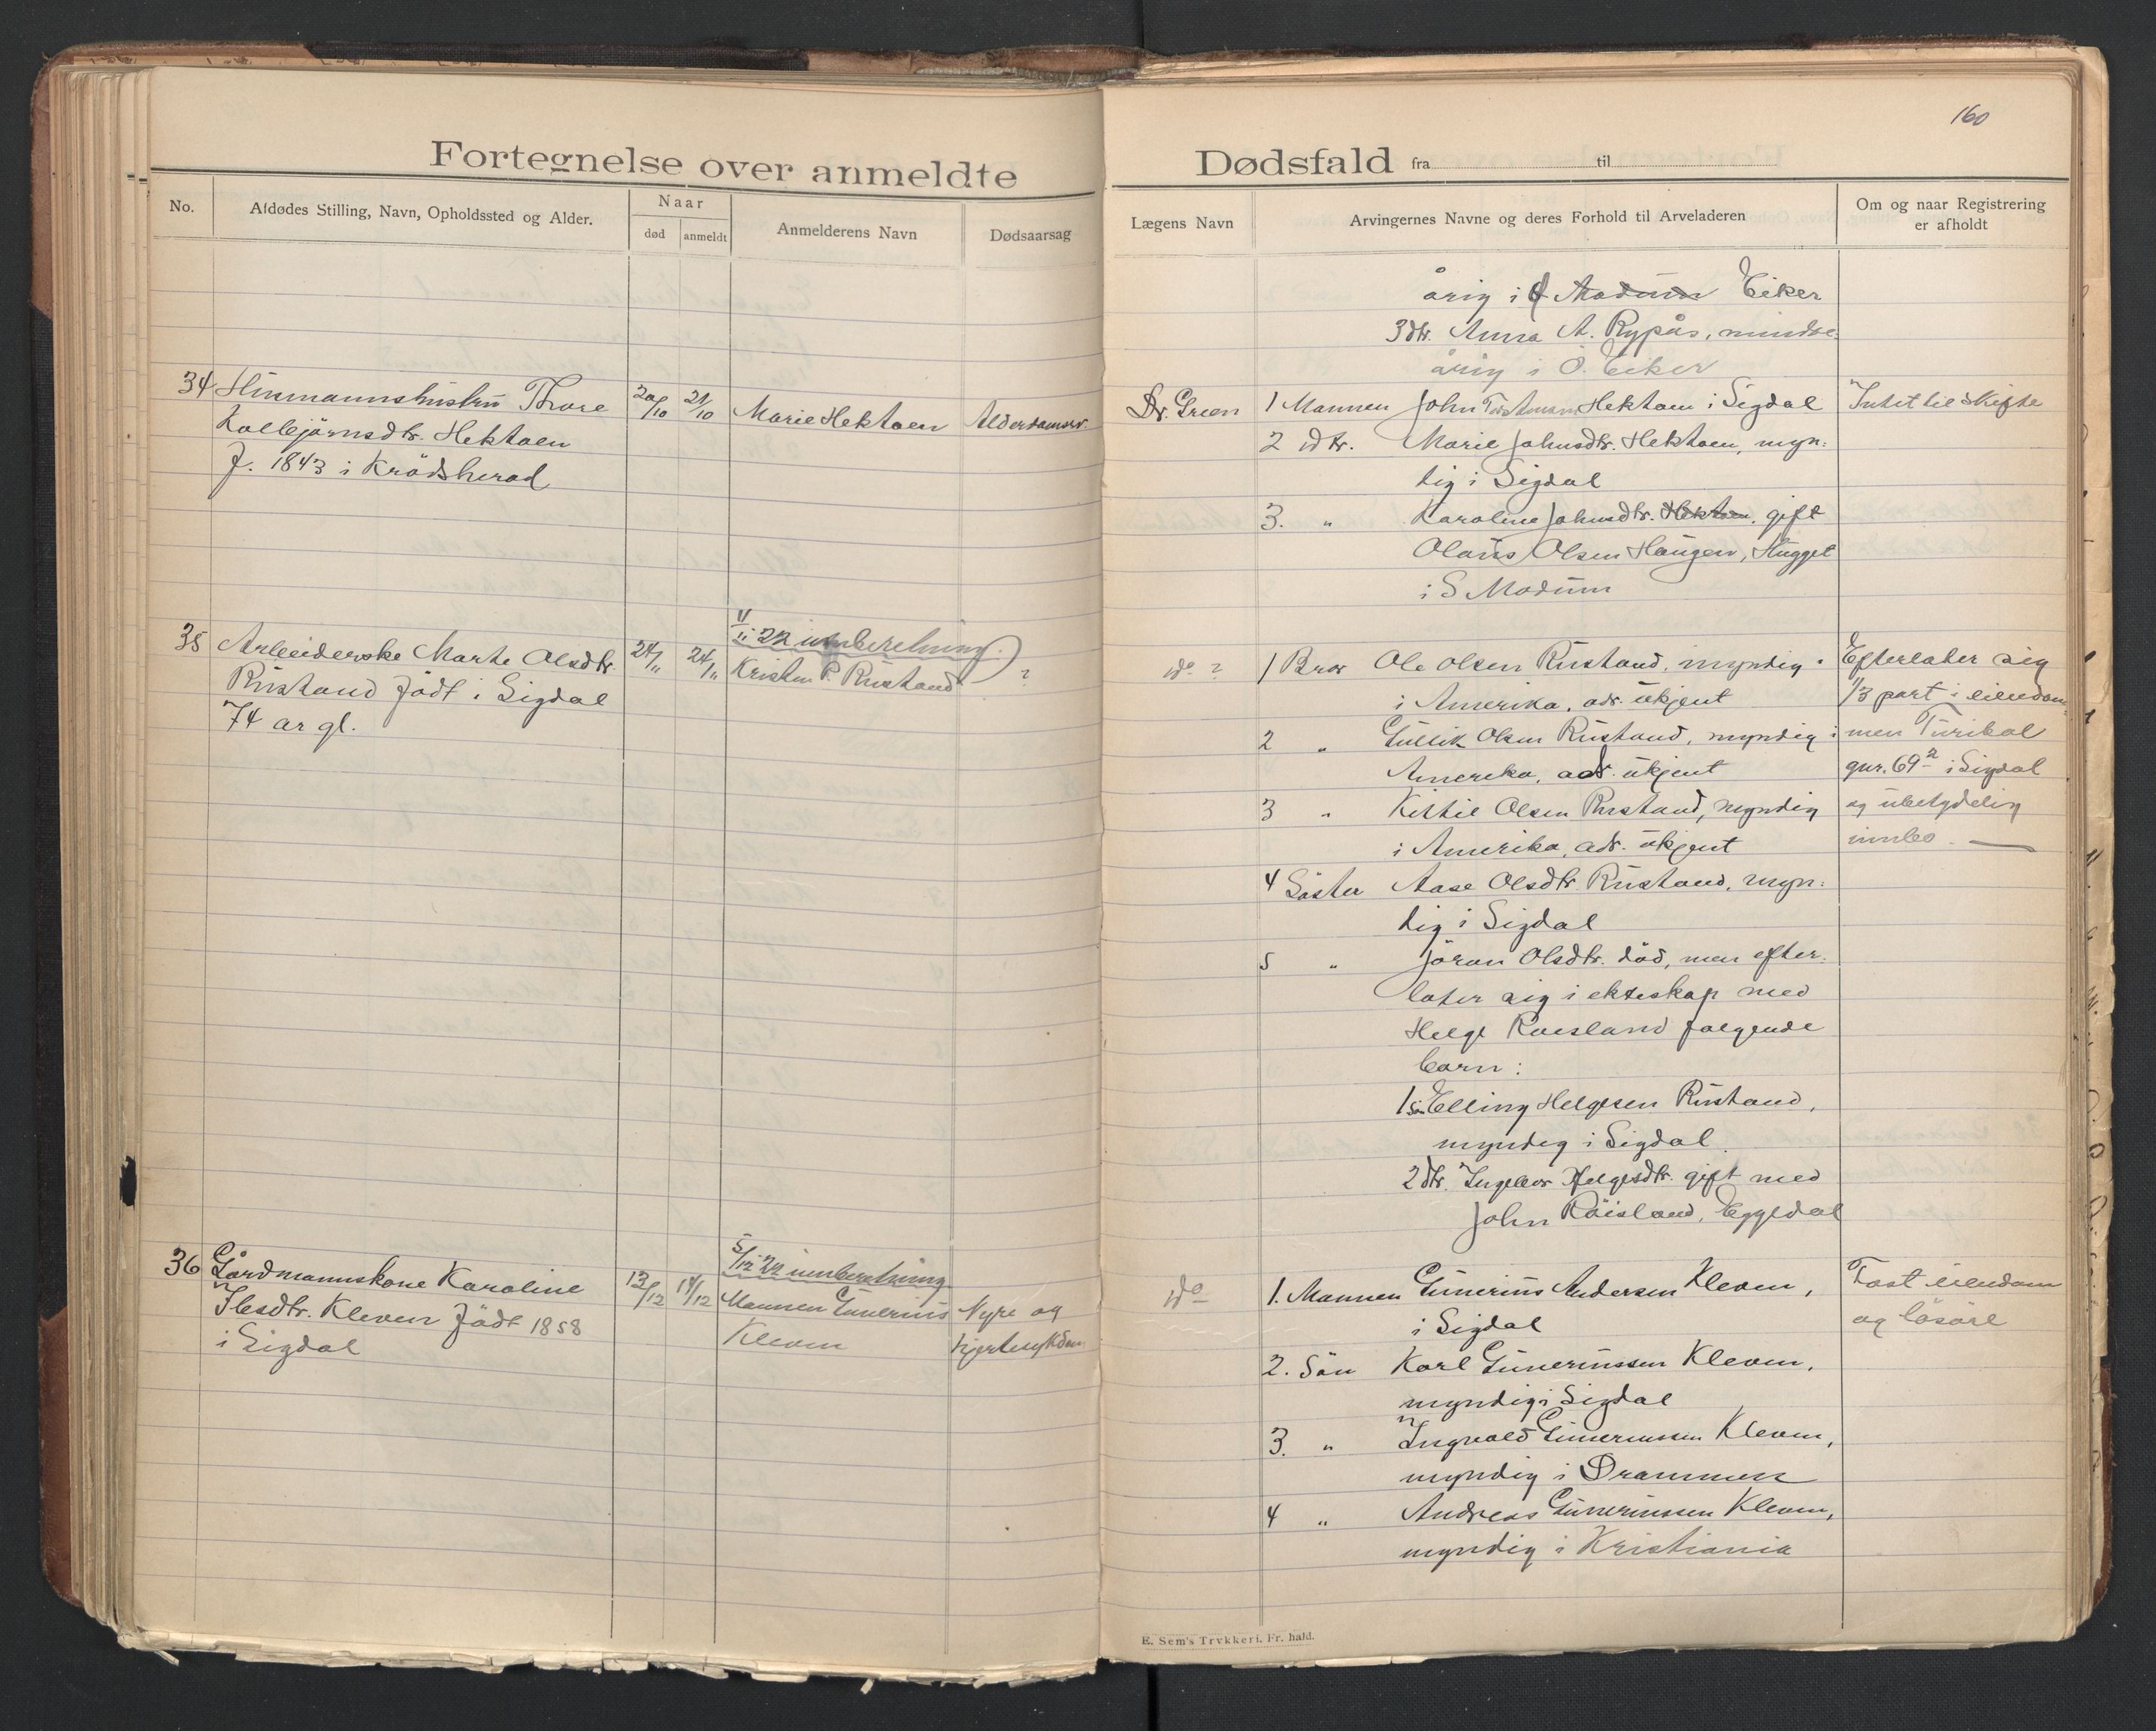 160
Fortegnelse over anmeldte Dødsfald fra til
No.
Afdødes Stilling, Navn, Opholdssted og Alder.
Naar
død
anmeldt
Anmelderens Navn
Dødsaarsag
Lægens Navn
Arvingernes Navne og deres Forhold til Arveladeren
Om og naar Registrering
er afholdt
årig i Modum Eiker
3 dtr. Anna A. Rypås, mindre:
årig i Ö. Eiker
34 Husmannshustru Thore
Kolbjörnsdtr. Hektoen
f. 1843 i Krödsherad
20/10 21/10 Marie Hektoen Alderdomssv.
Dr. Green
1 Mannen John Hektoen i Sigdal
2 dtr. Marie Johnsdtr. Hektoen, myn:
dig i Sigdal
3. " Karoline Johnsdtr. Hektoen, gift
Olaus Olsen Haugen, Hugget
i S Modum
Intet til skifte
35 Arbeiderske Marte Olsdtr.
Rustand född i Sigdal
74 ar gl.
24/11 24/11
11/11 22 innberetning.
Kristen P. Rustand ?
do ?
1 Bror Ole Olsen Rustand, myndig
i Amerika, adr. ukjent
2 " Gullik Olsen Rustand, myndig i
Amerika, adr. ukjent
3 " Kittil Olsen Rustand, myndig
i Amerika, adr. ukjent
4 Söster Aase Olsdtr. Rustand, myn:
dig i Sigdal
5 " Jöran Olsdtr. död, men efter:
later sig i ekteskap med
Helge Roesland folgende
barn:
1 sön Elling Helgesen Rustand,
myndig i Sigdal.
2 dtr. Ingebor Helgesdtr. gift med
John Röisland, Eggedal
Efterlater sig
1/3 part i eiendom:
men Turibal
gnr. 69 2 i Sigdal
og ubetydelig
innbo. —
36 Gårdmannskone Karoline
Ilesdtr. Kleven Födt 1858
i Sigdal
13/12 14/12
5/12 22 innberetning
Mannen Gunerius
Kleven
Nyre og
hjertesykdom
do
1. Mannen Gunerius Andersen Kleven,
i Sigdal
2. Sön Karl Guneriussen Kleven,
myndig i Sigdal
3. " Ingvald Guneriussen Kleven,
myndig i Drammen
4 " Andreas Guneriussen Kleven,
myndig i Kristiania
Fast eiendom
og lösöre
E. Sem's Trykkeri. Fr.hald.